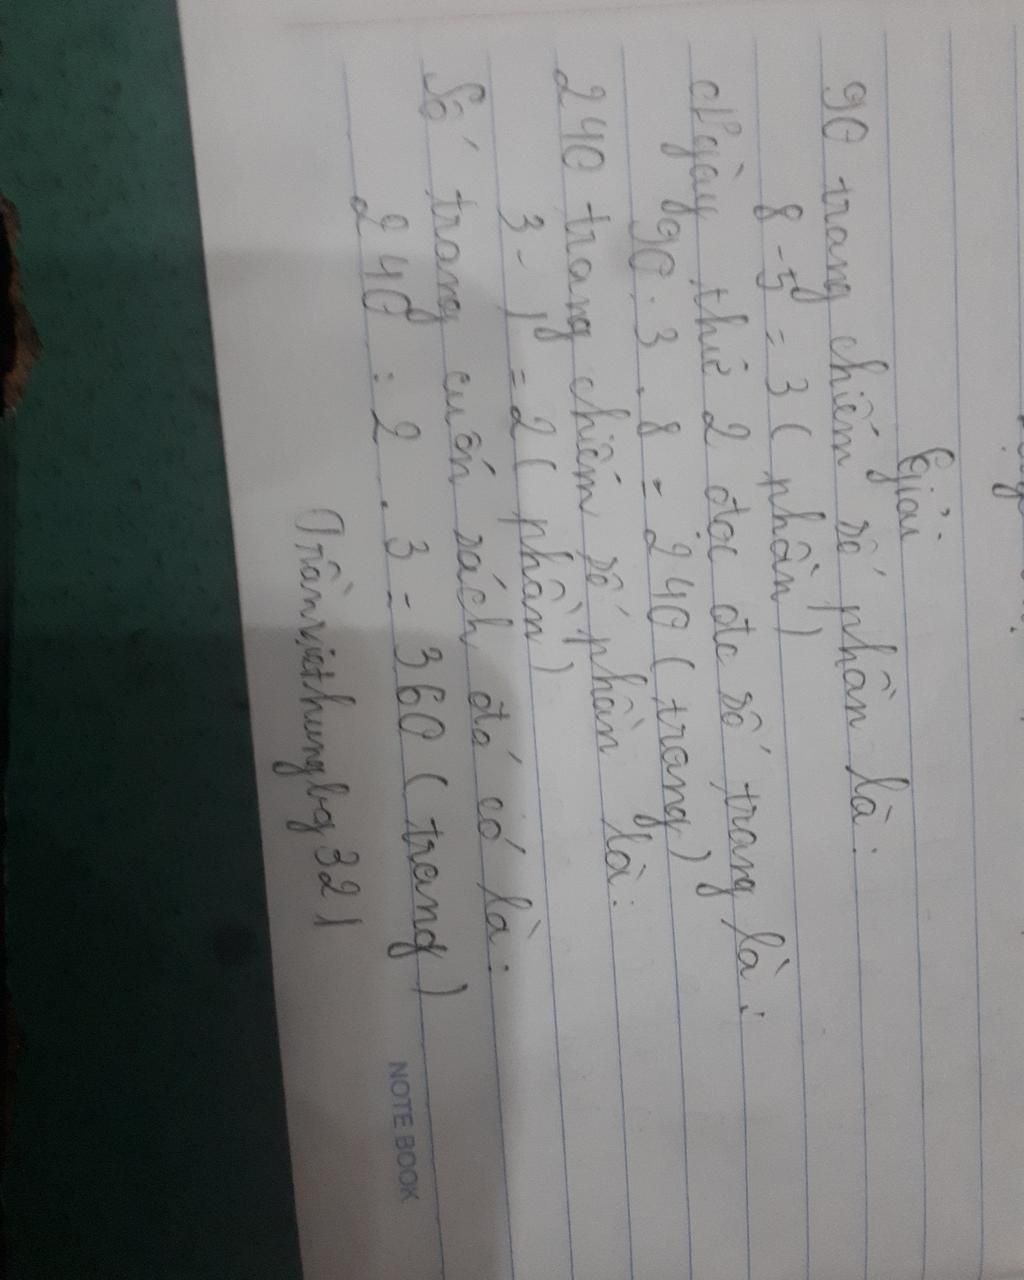 Giải
90 trang chiếm số phần là:
8 - 5 = 3 ( phần )
Ngày thứ 2 đọc đc số trang là:
90 : 3 . 8 = 240 ( trang )
240 trang chiếm số phần là:
3 - 1 = 2 ( phần )
Số trang cuốn sách đó có là:
240 : 2 . 3 = 360 ( trang )
Trầnviethungbg321
NOTE BOOK